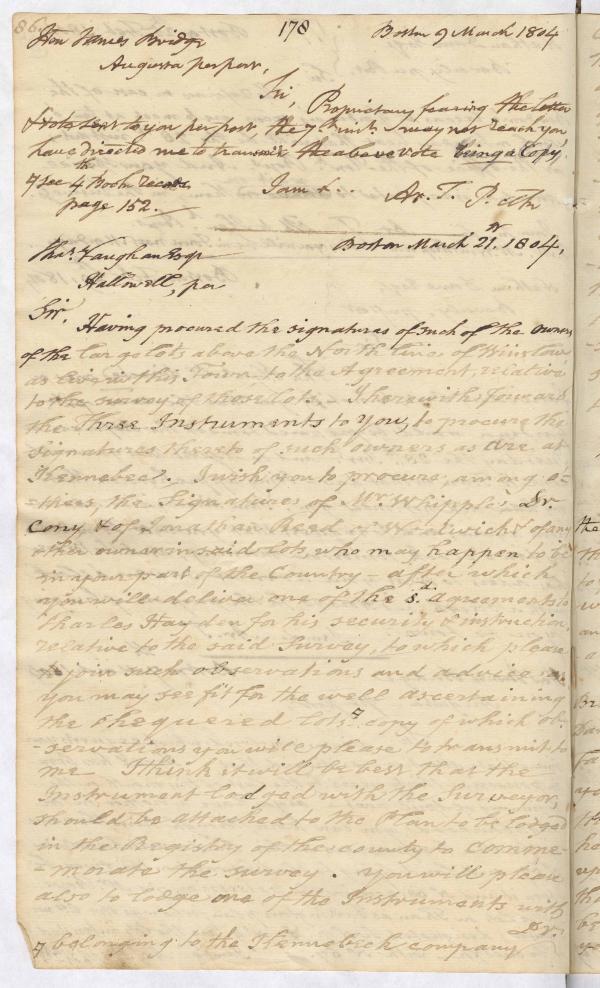 178
Boston 9 March 1804
Hon James Bridge
Augusta per post,
Sir, Proprietary fearing the letter
& vote sent to you per post, the 7th inst. may not reach you
have directed me to transmit the above vote being a Copy,
see 4th Book records
page 152.
I am &c. Ar. T. P. Clk
Boston March 21st. 1804,
Chas. Vaughan Esqr
Hallowell, per
Sir,
Having procured the signatures of such of the owners
of the large lots above the North line of Winslow
as live in this Town to the Agreement, relative
to the survey of those lots - I herewith forward
the Three Instruments to you, to procure the
signatures thereto of such owners as are at
Kennebec. I wish you to procure, among o-
-thers, the Signatures of Mr. Whipple, Dr.
Cony & of Jonathan Reed of Woolwich & of any
other owner in said lots, who may happen to be
in your part of the Country - after which
you will deliver one of the sd. agreements to
Charles Hayden for his security & instruction,
relative to the said Survey, to which please
to join such observations and advice as
you may see fit for the well ascertaining
the chequered lots, copy of which ob-
-servations you will please to transmit to
me I think it will be best that the
Instrument lodged with the Surveyor,
should be attached to the Plan to be lodged
in the Registry of the county to comme-
-morate the survey. You will please
also to lodge one of the Instruments with
Dr.
belonging to the Kennebeck company